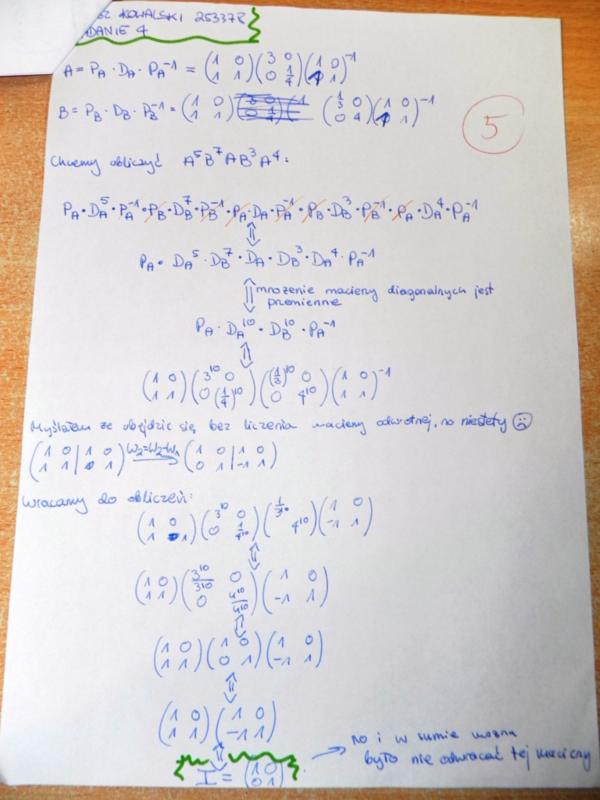 SZ KOWALSKI 253378
ZADANIE 4
A = P_A · D_A · P_A^-1 = (1 0; 1 1)(3 0; 0 1/4)(1 0; 1 1)^-1
B = P_B · D_B · P_B^-1 = (1 0; 1 1) (1/3 0; 0 4)(1 0; 1 1)^-1
5
Chcemy obliczyć A^5 B^7 A B^3 A^4:
P_A · D_A^5 · P_A^-1 · P_B · D_B^7 · P_B^-1 · P_A · D_A · P_A^-1 · P_B · D_B^3 · P_B^-1 · P_A · D_A^4 · P_A^-1
⇕
P_A · D_A^5 · D_B^7 · D_A · D_B^3 · D_A^4 · P_A^-1
⇕ mnożenie macierzy diagonalnych jest
przemienne
P_A · D_A^10 · D_B^10 · P_A^-1
⇕
(1 0; 1 1)(3^10 0; 0 (1/4)^10)((1/3)^10 0; 0 4^10)(1 0; 1 1)^-1
Myślałem że obejdzie się bez liczenia macierzy odwrotnej, no niestety ☹
(1 0 | 1 0; 1 1 | 0 1) W2=W2-W1 → (1 0 | 1 0; 0 1 | -1 1)
Wracamy do obliczeń:
(1 0; 1 1)(3^10 0; 0 1/4^10)(1/3^10; 4^10)(1 0; -1 1)
⇕
(1 0; 1 1)(3^10/3^10 0; 0 4^10/4^10)(1 0; -1 1)
⇕
(1 0; 1 1)(1 0; 0 1)(1 0; -1 1)
⇕
(1 0; 1 1)(1 0; -1 1)
⇕
I = (1 0; 0 1) → no i w sumie można
było nie odwracać tej macierzy